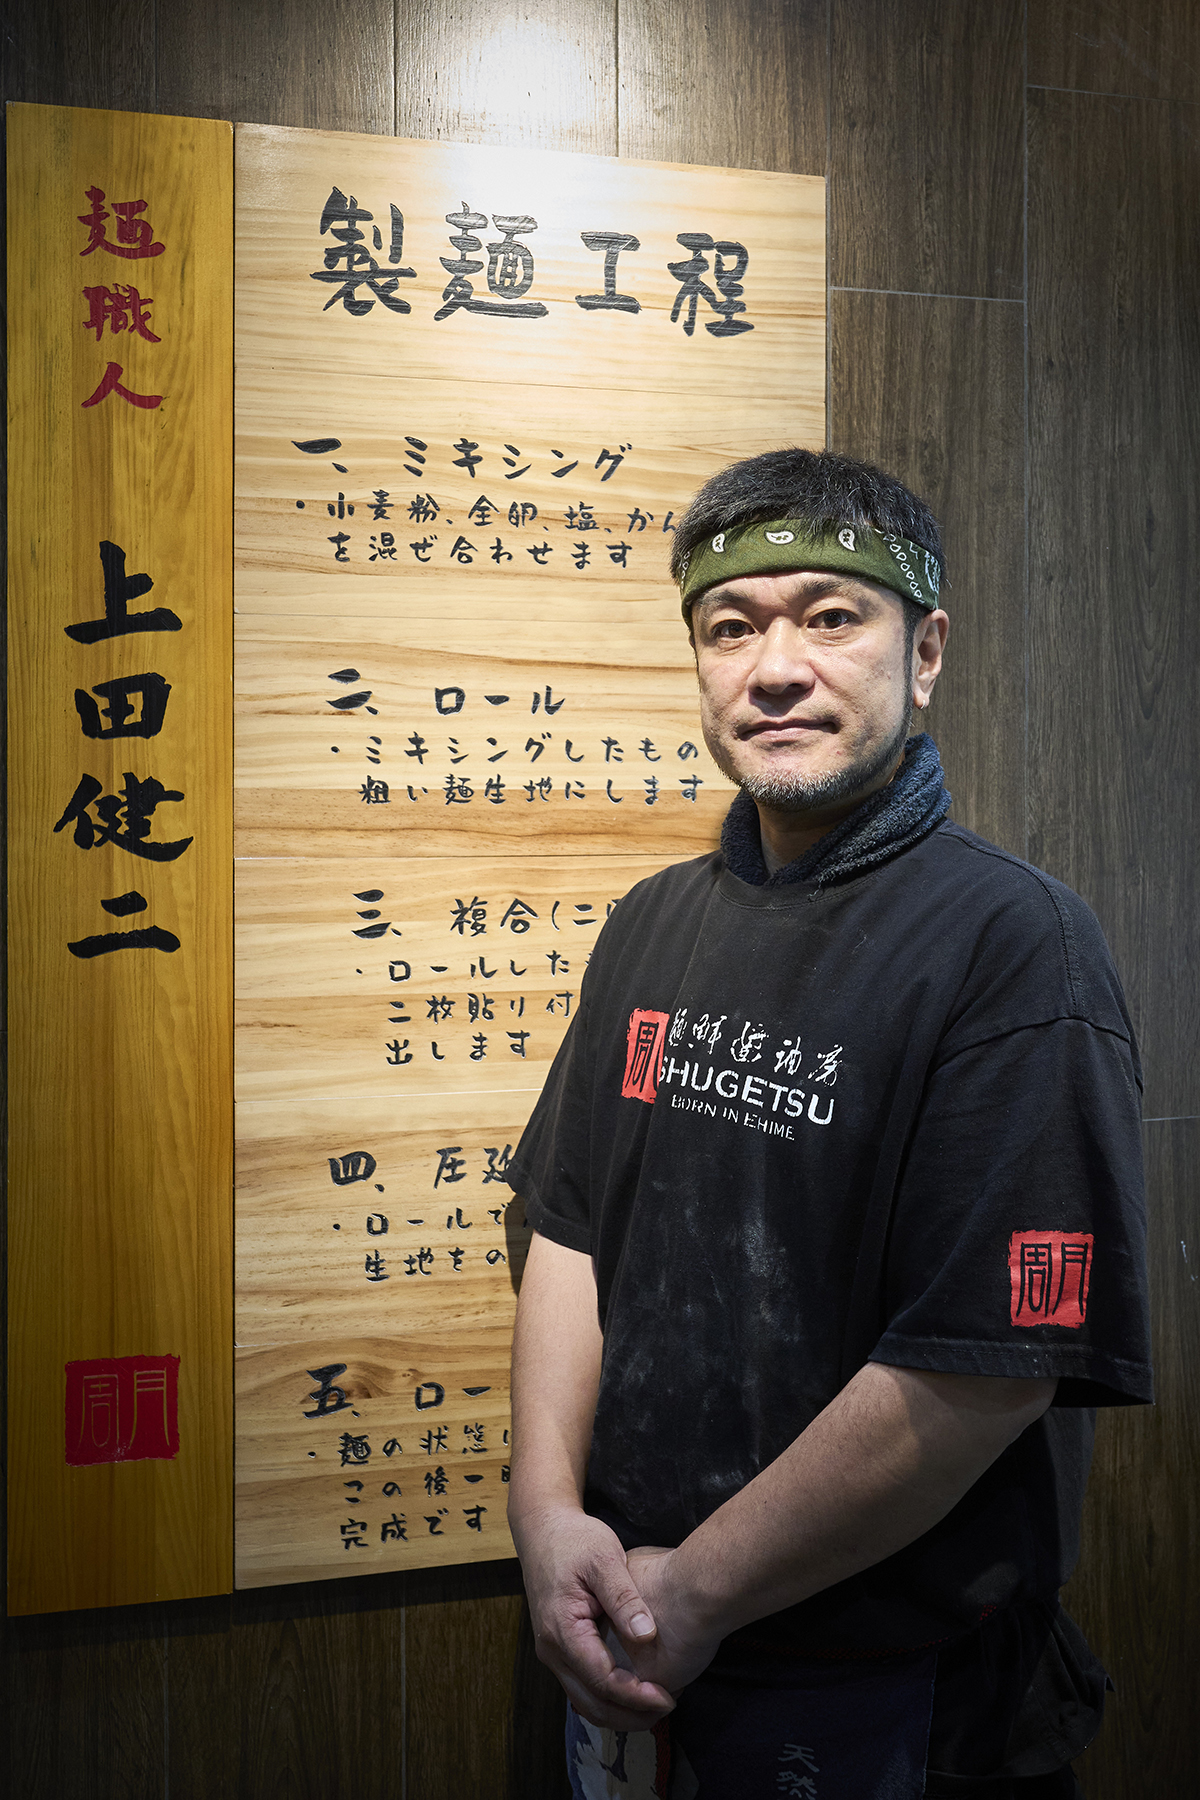 麺職人
上田健二
周月
製麺工程
一、ミキシング
・小麦粉、全卵、塩、かん
を混ぜ合わせます
二、ロール
・ミキシングしたもの
粗い麺生地にします
三、複合(二
・ロールした
二枚貼り付
出します
四、圧延
・ロールで
生地をの
五、ロー
・麺の状態
この後一
完成です
周
SHUGETSU
BORN IN EHIME
周月
天然